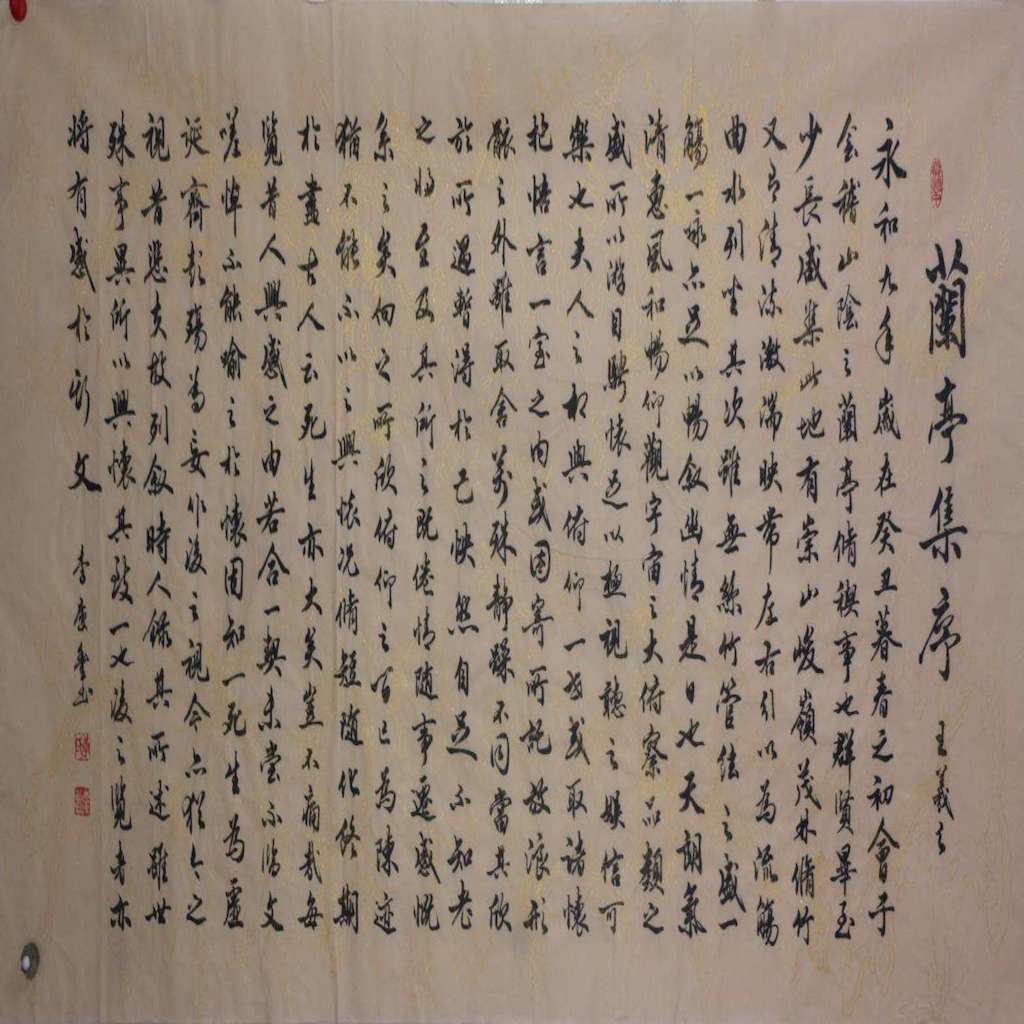 蘭亭集序 王羲之
永和九年歲在癸丑暮春之初會于
会稽山陰之蘭亭脩禊事也群賢畢至
少長咸集此地有崇山峻嶺茂林脩竹
又有清流激湍映帶左右引以為流觴
曲水列坐其次雖無絲竹管絃之盛一
觴一詠亦足以暢敘幽情是日也天朗氣
清惠風和暢仰觀宇宙之大俯察品類之
盛所以游目騁懷足以極視聽之娛信可
樂也夫人之相與俯仰一世或取諸懷
抱悟言一室之內或因寄所託放浪形
骸之外雖取舍萬殊靜躁不同當其欣
於所遇暫得於己怏然自足不知老
之將至及其所之既倦情隨事遷感慨
系之矣向之所欣俯仰之間已為陳迹
猶不能不以之興懷況脩短隨化終期
於盡古人云死生亦大矣豈不痛哉每
覽昔人興感之由若合一契未嘗不臨文
嗟悼不能喻之於懷固知一死生為虛
誕齊彭殤為妄作後之視今亦猶今之
視昔悲夫故列敘時人錄其所述雖世
殊事異所以興懷其致一也後之覽者亦
將有感於斯文